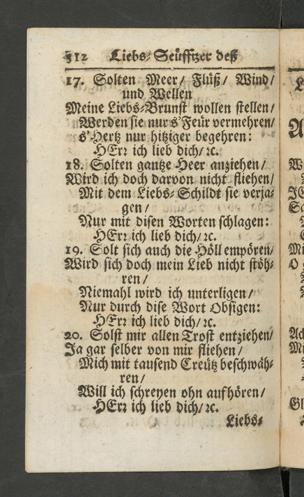 512 Liebs-Seüffzer deß
17. Solten Meer/ Flüß/ Wind/
und Wellen
Meine Liebs-Brunst wollen stellen/
Werden sie nur s' Feür vermehren/
s' Hertz nur hitziger begehren:
HErr ich lieb dich/ ꝛc.
18. Solten gantze Heer anziehen/
Wird ich doch darvon nicht fliehen/
Mit dem Liebs-Schildt sie verja-
gen/
Nur mit disen Worten schlagen:
HErr ich lieb dich/ ꝛc.
19. Solt sich auch die Höll empören/
Wird sich doch mein Lieb nicht stöh-
ren/
Niemahl wird ich unterligen/
Nur durch dise Wort Obsigen:
HErr ich lieb dich/ ꝛc.
20. Solst mir allen Trost entziehen/
Ja gar selber von mir fliehen/
Mich mit tausend Creütz beschwäh-
ren/
Will ich schreyen ohn aufhören/
HErr ich lieb dich/ ꝛc.
Liebs-